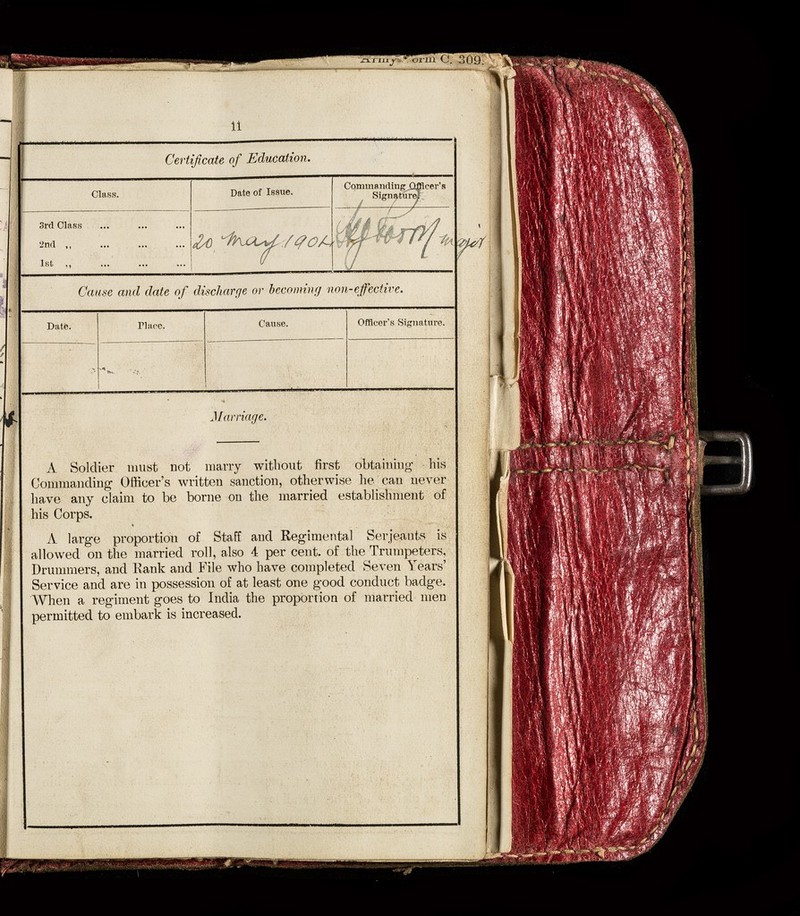 Army Form C. 309.
11
Certificate of Education.
Class.
Date of Issue.
Commanding Officer's
Signature.
3rd Class ... ... ...
2nd ,, ... ... ... 20 May 1904 Major
1st ,, ... ... ...
Cause and date of discharge or becoming non-effective.
Date.
Place.
Cause.
Officer's Signature.
Marriage.
A Soldier must not marry without first obtaining his
Commanding Officer's written sanction, otherwise he can never
have any claim to be borne on the married establishment of
his Corps.
A large proportion of Staff and Regimental Serjeants is
allowed on the married roll, also 4 per cent. of the Trumpeters,
Drummers, and Rank and File who have completed Seven Years'
Service and are in possession of at least one good conduct badge.
When a regiment goes to India the proportion of married men
permitted to embark is increased.